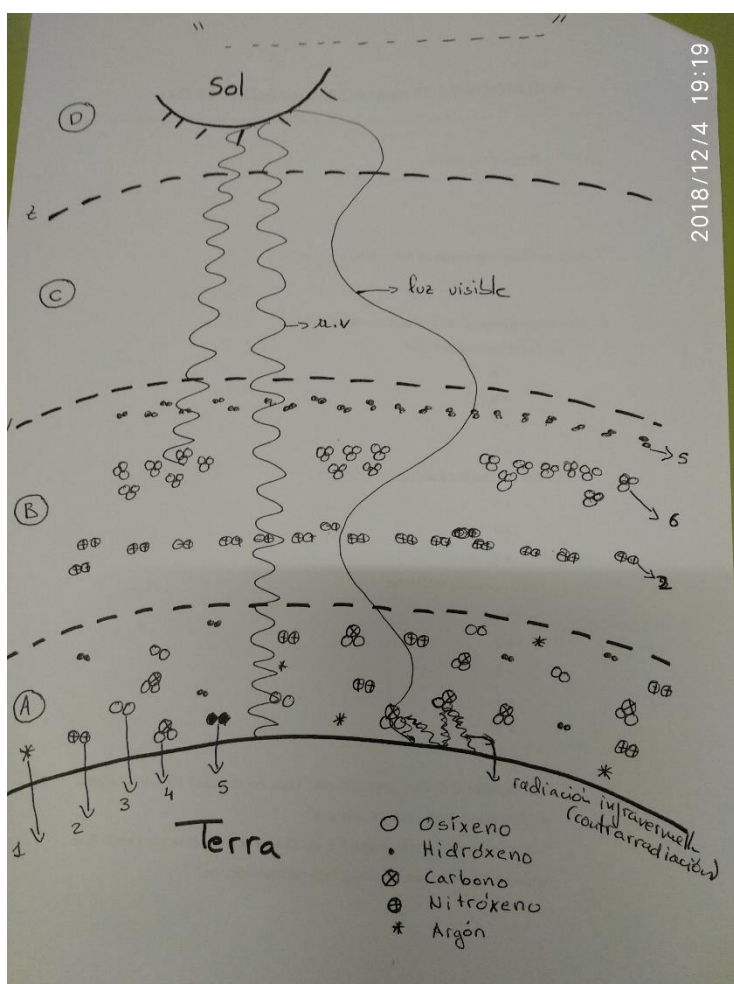 "                    "
Sol
D
2018/12/4 19:19
z
C
luz visible
u.v
5
6
B
2
A
1
2
3
4
5
radiación infravermella
(contrarradiación)
Terra
Osíxeno
Hidróxeno
Carbono
Nitróxeno
Argón